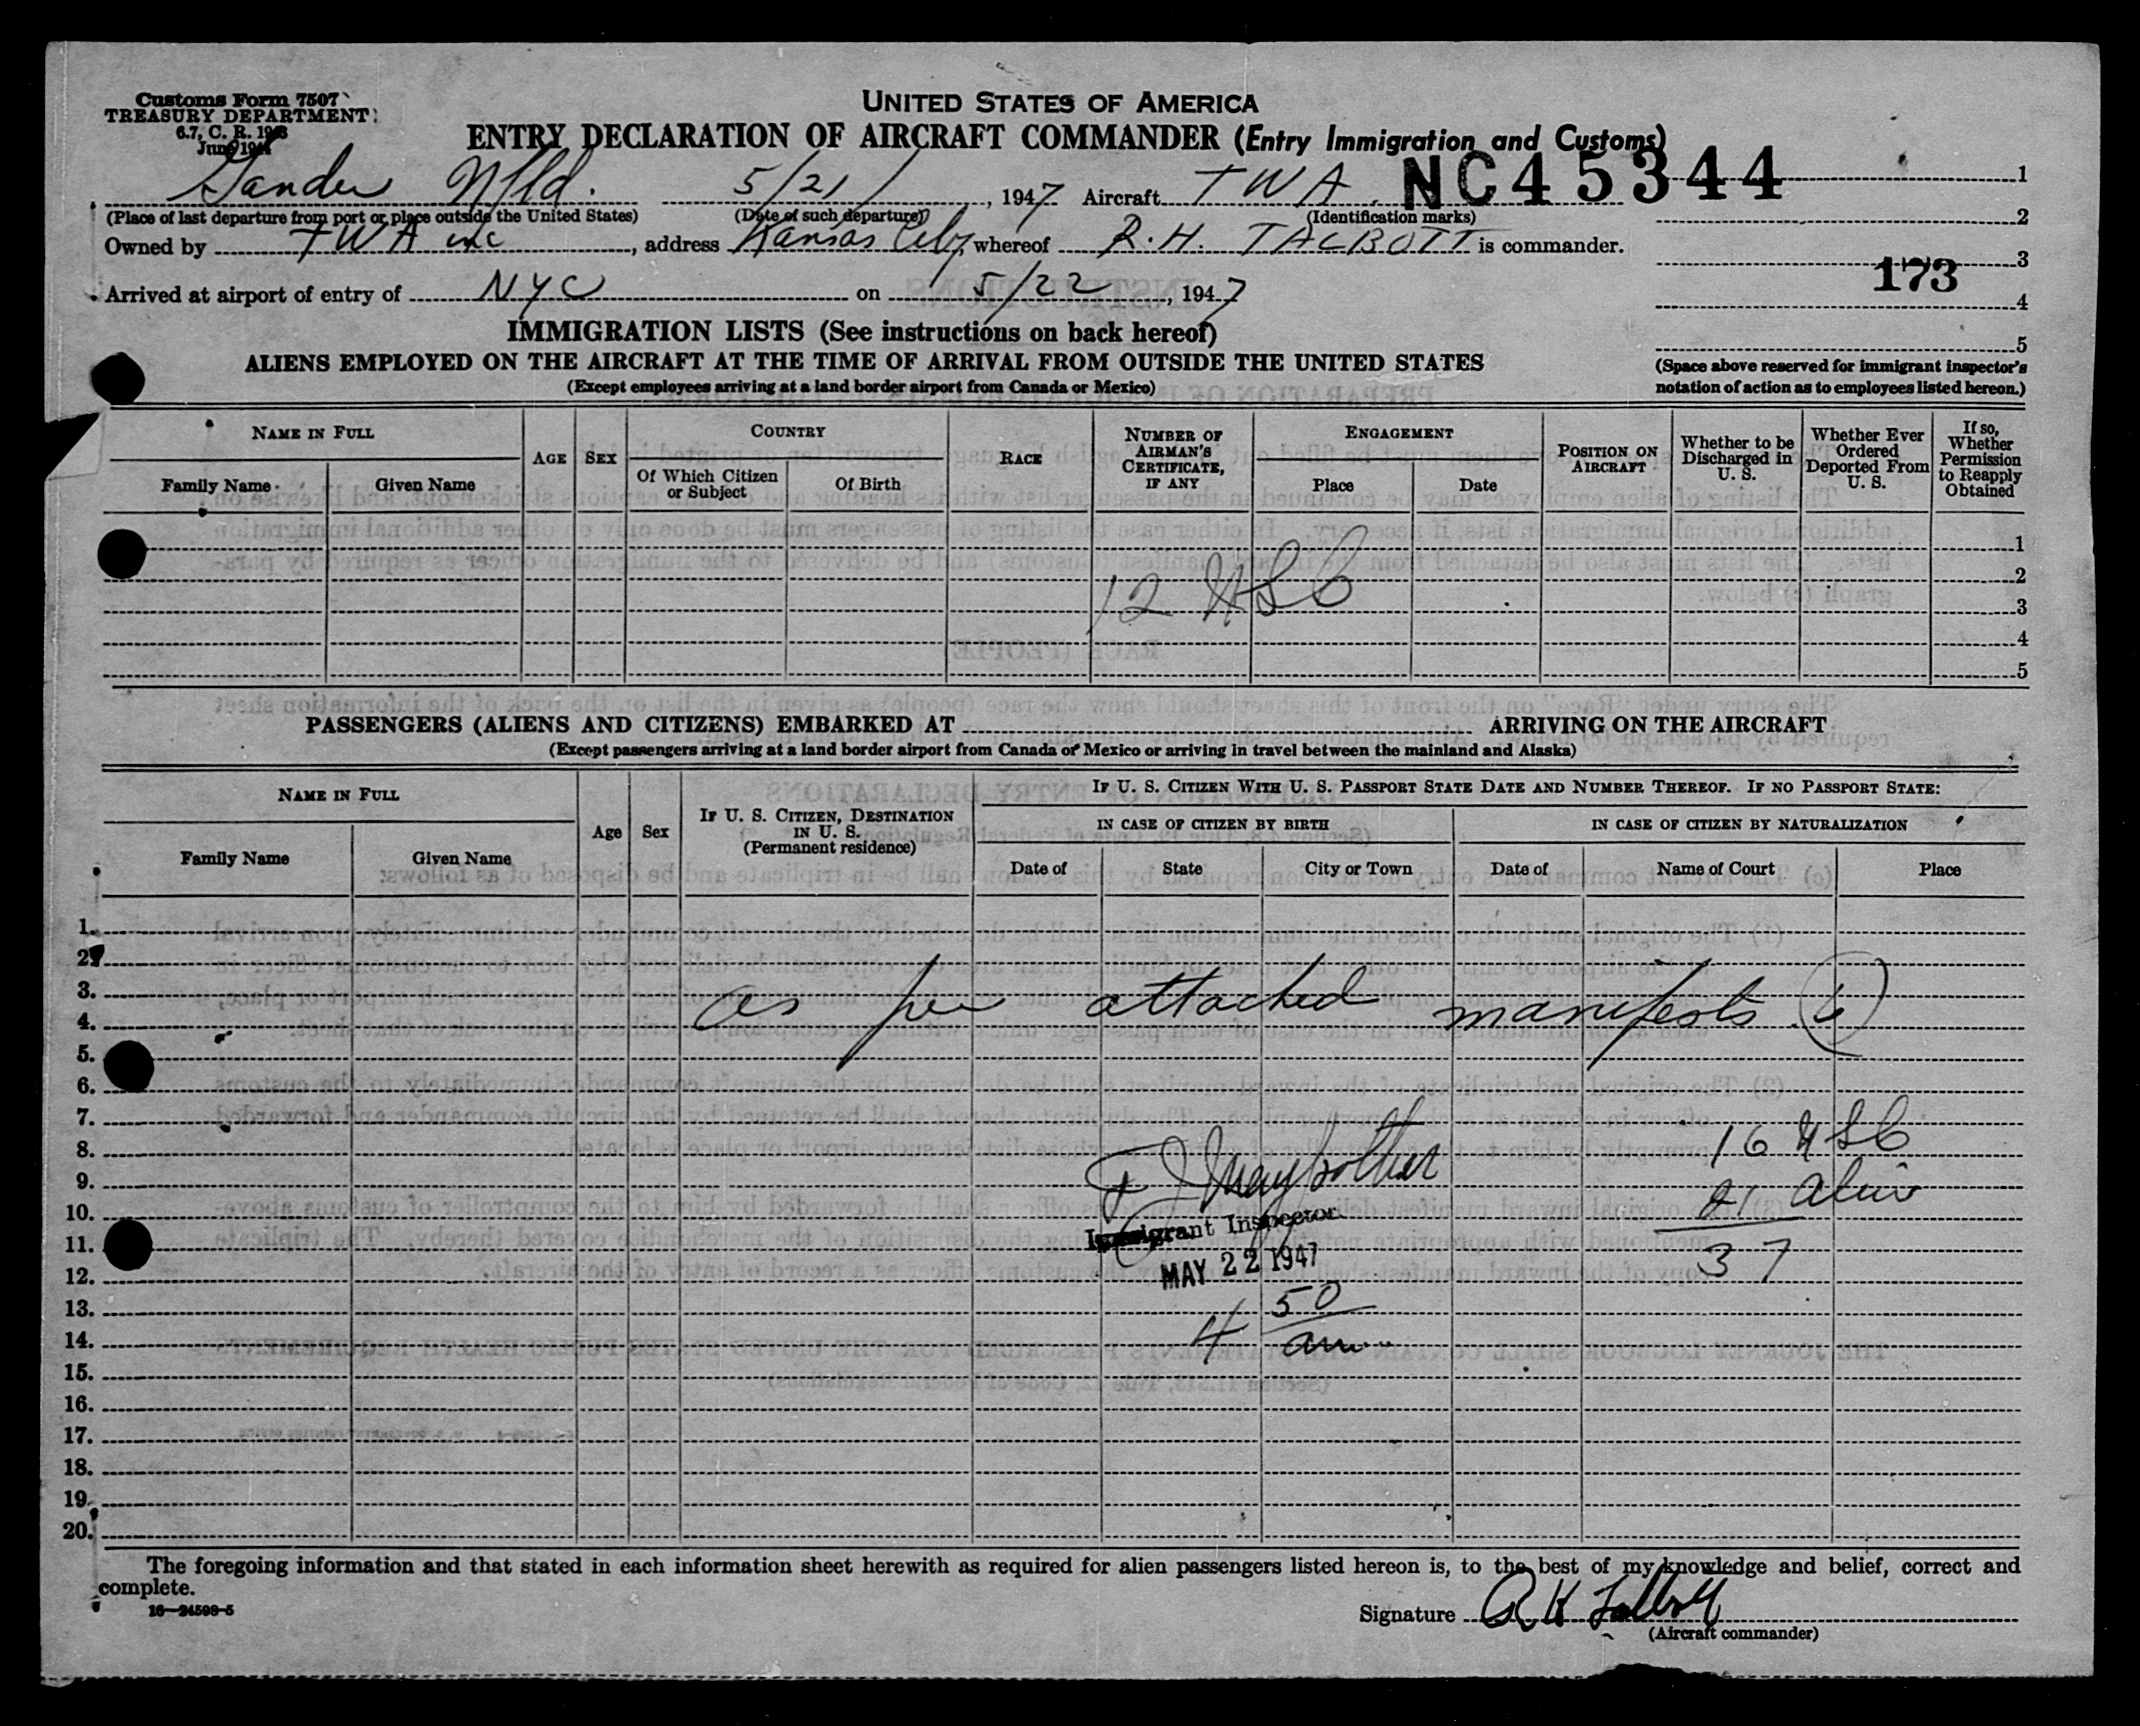 Customs Form 7507
TREASURY DEPARTMENT
6.7, C. R. 1943
June 1944
UNITED STATES OF AMERICA
ENTRY DECLARATION OF AIRCRAFT COMMANDER (Entry Immigration and Customs)
Gander Nfld. 5/21/, 1947 Aircraft TWA NC45344 1
(Place of last departure from port or place outside the United States) (Date of such departure) (Identification marks) 2
Owned by TWA inc, address Kansas City, whereof R.H. TALBOTT is commander.
3
173
Arrived at airport of entry of NYC on 5/22, 1947 4
IMMIGRATION LISTS (See instructions on back hereof)
5
ALIENS EMPLOYED ON THE AIRCRAFT AT THE TIME OF ARRIVAL FROM OUTSIDE THE UNITED STATES
(Except employees arriving at a land border airport from Canada or Mexico)
(Space above reserved for immigrant inspector's
notation of action as to employees listed hereon.)
NAME IN FULL
Family Name Given Name
AGE SEX
COUNTRY
Of Which Citizen or Subject Of Birth
RACE
NUMBER OF AIRMAN'S CERTIFICATE, IF ANY
ENGAGEMENT
Place Date
POSITION ON AIRCRAFT
Whether to be Discharged in U. S.
Whether Ever Ordered Deported From U. S.
If so, Whether Permission to Reapply Obtained
1
2
12 USC
3
4
5
PASSENGERS (ALIENS AND CITIZENS) EMBARKED AT ARRIVING ON THE AIRCRAFT
(Except passengers arriving at a land border airport from Canada or Mexico or arriving in travel between the mainland and Alaska)
NAME IN FULL
Family Name Given Name
Age Sex
IF U. S. CITIZEN, DESTINATION IN U. S.
(Permanent residence)
IF U. S. CITIZEN WITH U. S. PASSPORT STATE DATE AND NUMBER THEREOF. IF NO PASSPORT STATE:
IN CASE OF CITIZEN BY BIRTH IN CASE OF CITIZEN BY NATURALIZATION
Date of State City or Town Date of Name of Court Place
1.
2.
3.
as per attached manifests (6)
4.
5.
6.
7.
8. 16 USC
9. 21 Alien
10.
Immigrant Inspector
11. 37
12. MAY 22 1947
13. 50
14. 4 am
15.
16.
17.
18.
19.
20.
The foregoing information and that stated in each information sheet herewith as required for alien passengers listed hereon is, to the best of my knowledge and belief, correct and
complete.
16—24598-5
Signature R H Talbott
(Aircraft commander)